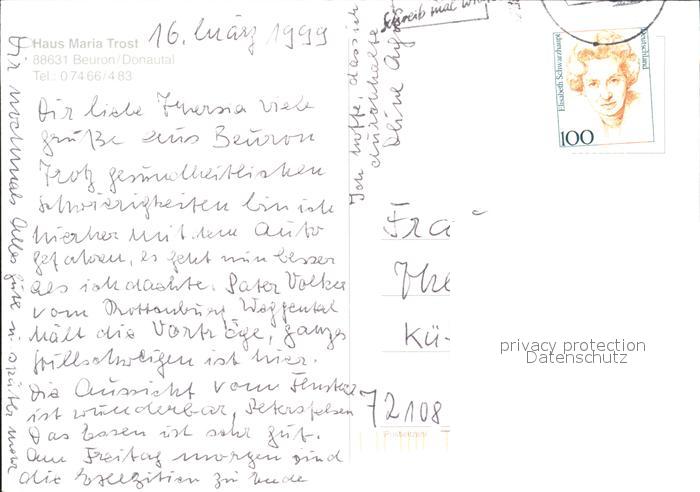 Haus Maria Trost
88631 Beuron/Donautal
Tel.: 07466/483
16. März 1999
Dir liebe Theresia viele
grüße aus Beuron
Trotz gesundheitlichen
Schwierigkeiten bin ich
hierher mit dem Auto
gefahren, es geht nun besser
als ich dachte. Pater Volker
vom Rottenburg Weggental
hält die Vorträge, ganzes
stillschweigen ist hier.
Die Aussicht vom Fenster
ist wunderbar, Petersfelsen
Das Essen ist sehr gut.
Am Freitag morgen sind
die Exerzitien zu Ende
Dir nochmals Alles gute u. später mehr
Ich hoffe, dass ich
durchhalte
Deine
Schreib mal wieder
Elisabeth Schwarzhaupt
Deutschland
100
Fra
The
Kü-
72108
Postleitzahl
privacy protection
Datenschutz